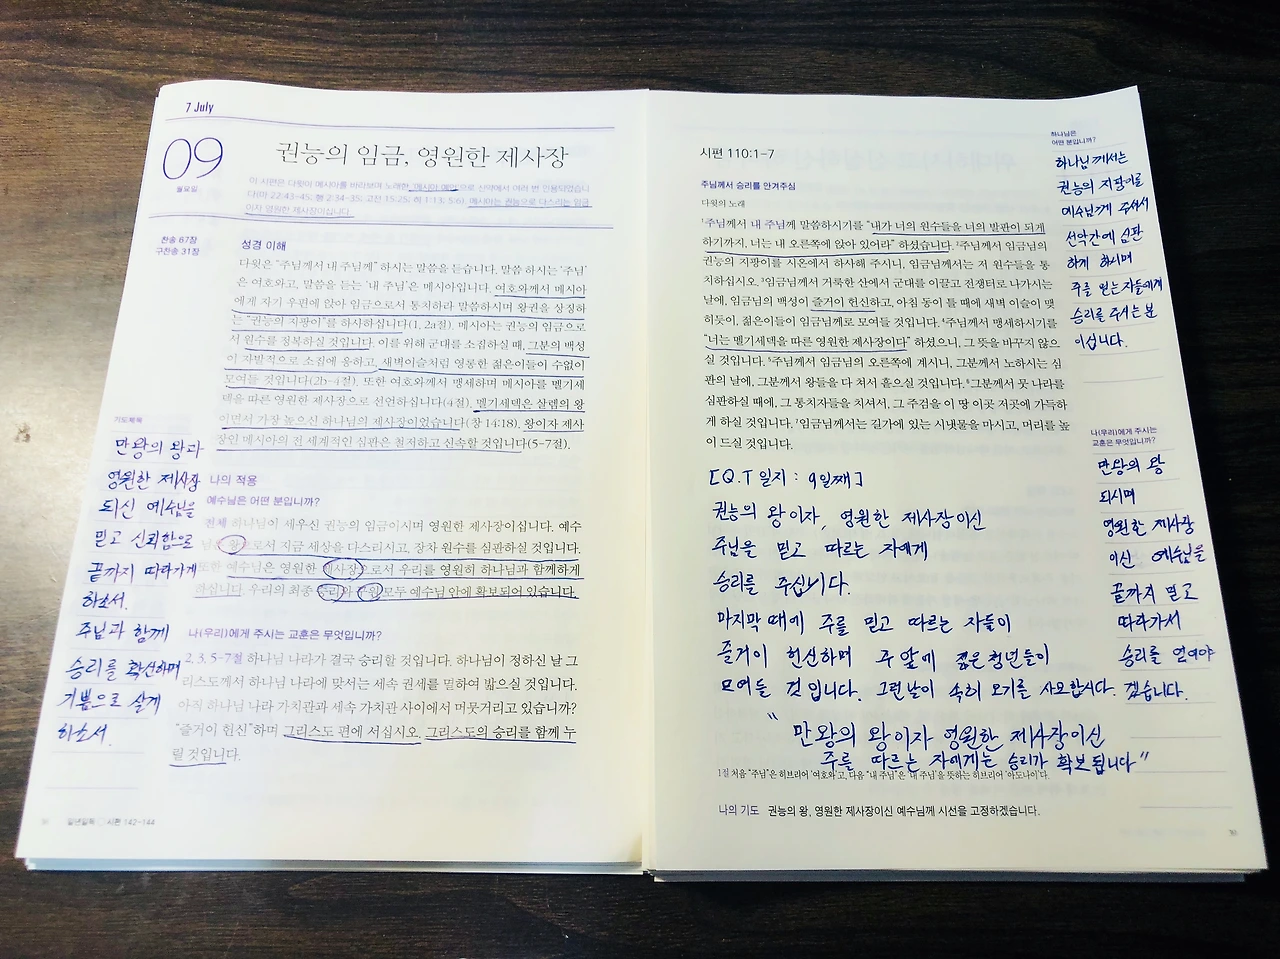 7 July
09
월요일
권능의 임금, 영원한 제사장
이 시편은 다윗이 메시아를 바라보며 노래한 '메시아 예언'으로 신약에서 여러 번 인용되었습니
다(마 22:43-45; 행 2:34-35; 고전 15:25; 히 1:13; 5:6). 메시아는 권능으로 다스리는 임금
이자 영원한 제사장이십니다.
찬송 67장
구찬송 31장
성경 이해
다윗은 "주님께서 내 주님께" 하시는 말씀을 듣습니다. 말씀 하시는 '주님'
은 여호와고, 말씀을 듣는 '내 주님'은 메시아입니다. 여호와께서 메시아
에게 자기 우편에 앉아 임금으로서 통치하라 말씀하시며 왕권을 상징하
는 "권능의 지팡이"를 하사하십니다(1, 2a절). 메시아는 권능의 임금으로
서 원수를 정복하실 것입니다. 이를 위해 군대를 소집하실 때, 그분의 백성
이 자발적으로 소집에 응하고, 새벽이슬처럼 영롱한 젊은이들이 수없이
모여들 것입니다(2b-4절). 또한 여호와께서 맹세하며 메시아를 멜기세
덱을 따른 영원한 제사장으로 선언하십니다(4절). 멜기세덱은 살렘의 왕
이면서 가장 높으신 하나님의 제사장이었습니다(창 14:18). 왕이자 제사
장인 메시아의 전 세계적인 심판은 철저하고 신속할 것입니다(5-7절).
기도제목
만왕의 왕과
영원한 제사장
되신 예수님을
믿고 신뢰함으로
끝까지 따라가게
하소서.
주님과 함께
승리를 확신하며
기쁨으로 살게
하소서.
나의 적용
예수님은 어떤 분입니까?
전체 하나님이 세우신 권능의 임금이시며 영원한 제사장이십니다. 예수
님은 왕으로서 지금 세상을 다스리시고, 장차 원수를 심판하실 것입니다.
또한 예수님은 영원한 제사장으로서 우리를 영원히 하나님과 함께하게
하십니다. 우리의 최종 승리와 구원 모두 예수님 안에 확보되어 있습니다.
나(우리)에게 주시는 교훈은 무엇입니까?
2, 3, 5-7절 하나님 나라가 결국 승리할 것입니다. 하나님이 정하신 날 그
리스도께서 하나님 나라에 맞서는 세속 권세를 멸하여 밟으실 것입니다.
아직 하나님 나라 가치관과 세속 가치관 사이에서 머뭇거리고 있습니까?
"즐거이 헌신"하며 그리스도 편에 서십시오. 그리스도의 승리를 함께 누
릴 것입니다.
일년일독 시편 142-144
시편 110:1-7
주님께서 승리를 안겨주심
다윗의 노래
1주님께서 내 주님께 말씀하시기를 "내가 너의 원수들을 너의 발판이 되게
하기까지, 너는 내 오른쪽에 앉아 있어라" 하셨습니다. 2주님께서 임금님의
권능의 지팡이를 시온에서 하사해 주시니, 임금님께서는 저 원수들을 통
치하십시오. 3임금님께서 거룩한 산에서 군대를 이끌고 전쟁터로 나가시는
날에, 임금님의 백성이 즐거이 헌신하고, 아침 동이 틀 때에 새벽 이슬이 맺
히듯이, 젊은이들이 임금님께로 모여들 것입니다. 4주님께서 맹세하시기를
"너는 멜기세덱을 따른 영원한 제사장이다" 하셨으니, 그 뜻을 바꾸지 않으
실 것입니다. 5주님께서 임금님의 오른쪽에 계시니, 그분께서 노하시는 심
판의 날에, 그분께서 왕들을 다 쳐서 흩으실 것입니다. 6그분께서 뭇 나라를
심판하실 때에, 그 통치자들을 치셔서, 그 주검을 이 땅 이곳 저곳에 가득하
게 하실 것입니다. 7임금님께서는 길가에 있는 시냇물을 마시고, 머리를 높
이 드실 것입니다.
[Q.T 일지 : 9일째]
권능의 왕이자, 영원한 제사장이신
주님을 믿고 따르는 자에게
승리를 주십니다.
마지막 때에 주를 믿고 따르는 자들이
즐거이 헌신하며 주 앞에 젊은 청년들이
모여들 것입니다. 그런날이 속히 오기를 사모합시다.
"만왕의 왕이자 영원한 제사장이신
주를 따르는 자에게는 승리가 확보됩니다"
1절 처음 '주님'은 히브리어 '여호와'고, 다음 '내 주님'은 '내 주님'을 뜻하는 히브리어 '아도니'이다.
나의 기도 권능의 왕, 영원한 제사장이신 예수님께 시선을 고정하겠습니다.
하나님은
어떤 분입니까?
하나님께서는
권능의 지팡이를
예수님께 주셔서
선악간에 심판
하게 하시며
주를 믿는 자들에게
승리를 주시는 분
이십니다.
나(우리)에게 주시는
교훈은 무엇입니까?
만왕의 왕
되시며
영원한 제사장
이신 예수님을
끝까지 믿고
따라가서
승리를 얻어야
겠습니다.